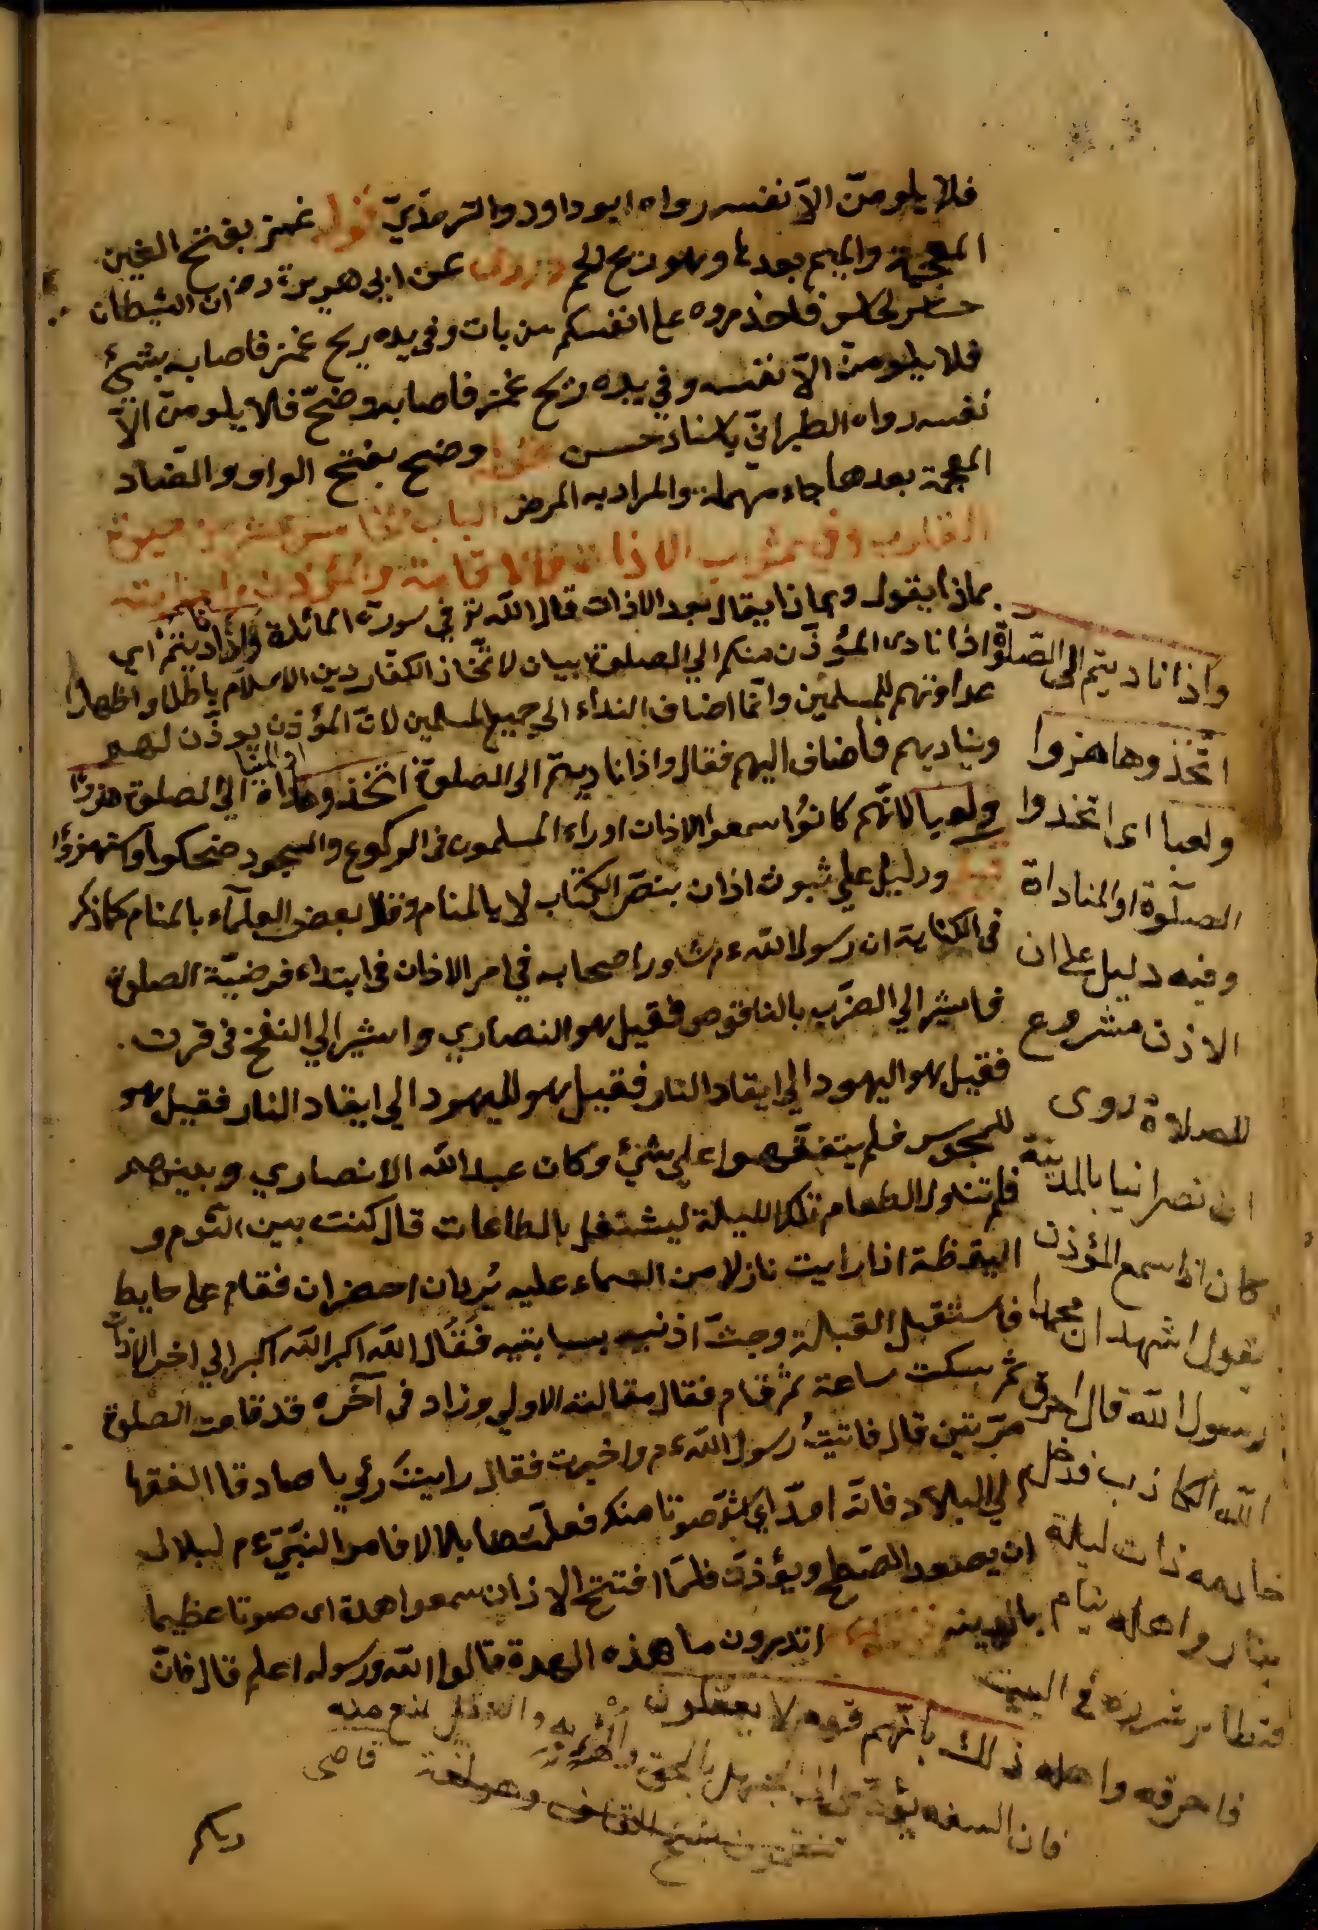 فلا يلومنّ الاّ نفسه رواه ابو داود والترمذيّ قوله غمز بفتح الغين
المعجمة والميم بعدها وهو ريح لحم وروى عن ابي هريرة رض ان الشيطان
حساس لحاس فاحذروه على انفسكم من بات وفي يده ريح غمز فاصابه بشئ
فلا يلومنّ الاّ نفسه وفي يده ريح غمز فاصابه وضحّ فلا يلومنّ الاّ
نفسه رواه الطبرانيّ باسناد حسن قوله وضح بفتح الواو والضاد
المعجمة بعدها حاء مهملة والمراد به المرض الباب
الاذان والاقامة والمؤذن
بماذا يقول وبماذا يقال بعد الاذان قال الله تع في سورة المائدة واذا ناديتم اي
اذا نادى المؤذّن منكم الي الصلوة بيان لاتّخاذ الكفّار دين الاسلام باطلا واظهارا
عداوتهم للمسلمين وانّما اضاف النداء الي جميع المسلمين لانّ المؤذّن يوذّن لهم
ويناديهم فأضاف اليهم فقال واذا ناديتم الى الصلوة اتخذوها اي المناداة الي الصلوة هزوا
ولعبا لانّهم كانوُا سمعوا الاذان اوراء المسلمون في الركوع والسجود ضحكوا وكستهزؤا
قيل ودليل علي ثبوت اذان بنصّ الكتاب لا بالمنام وقال بعض العلمآء بالمنام كما ذكر
في الكفاية ان رسول الله ءم شاور اصحابه في امر الاذان في ابتداء فرضيّة الصلوة
فاشير الي الضرب بالناقوص فقيل هو النصاري واشير الي النفخ في قرن .
فقيل هو اليهود الي ايقاد النار فقيل هو لليهود الي ايقاد النار فقيل هو
للمجوس فلم يتفقّهوا علي شئ وكان عبد الله الانصاري وبينهم
فلم تناول الطعام تلك الليلة ليشتغل بالطاعات قال كنت بين النّوم و
اليقظة اذا رايت نازلا من السماء عليه بُردان احضران فقام على حايط
فاستقبل القبلة وجثّ اذنيه بسبابتيه فقال الله اكبر الله اكبر الي اخر الاذان
ثم سكت ساعة ثم قام فقال مقالته الاولي وزاد في آخره قد قامت الصلوة
مرّتين قال فاتيتُ رسول الله ءم واخبرت فقال رايتَ رئي يا صادقا القها
الي البلال فانّه امدّ اي اشدّ صوتا منك فعلّمتها بلالا فامر النبّيّ ءم لبلال
ان يصعد الصّطح ويؤذنّ فلمّا افتتح الاذان سمعوا هدة اى صوتا عظيما
بالمدينه اتدرون ما هذه الهدة قالوا الله ورسوله اعلم قال فانّ
واذا ناديتم الى الصّلوة
اتّخذوها هزوا
ولعبا اى اتخذوا
الصلوة او المناداة
وفيه دليل على ان
الاذن مشروع
للصلاة روى
ان نصرانيا بالمدينة
كان اذا سمع المؤذن
يقول اشهد ان محمدا
رسول الله قال احرق
الله الكاذب فدخل
خادمه ذات ليلة
بنار واهله نيام
فتطاير شرره في البيت
فاحرقه واهله ذلك بأنّهم قوم لا يعقلون
فان السفه يؤدّي الى الجهل بالحق والهزء به والعقل يمنع منه
قاضى
ربكم